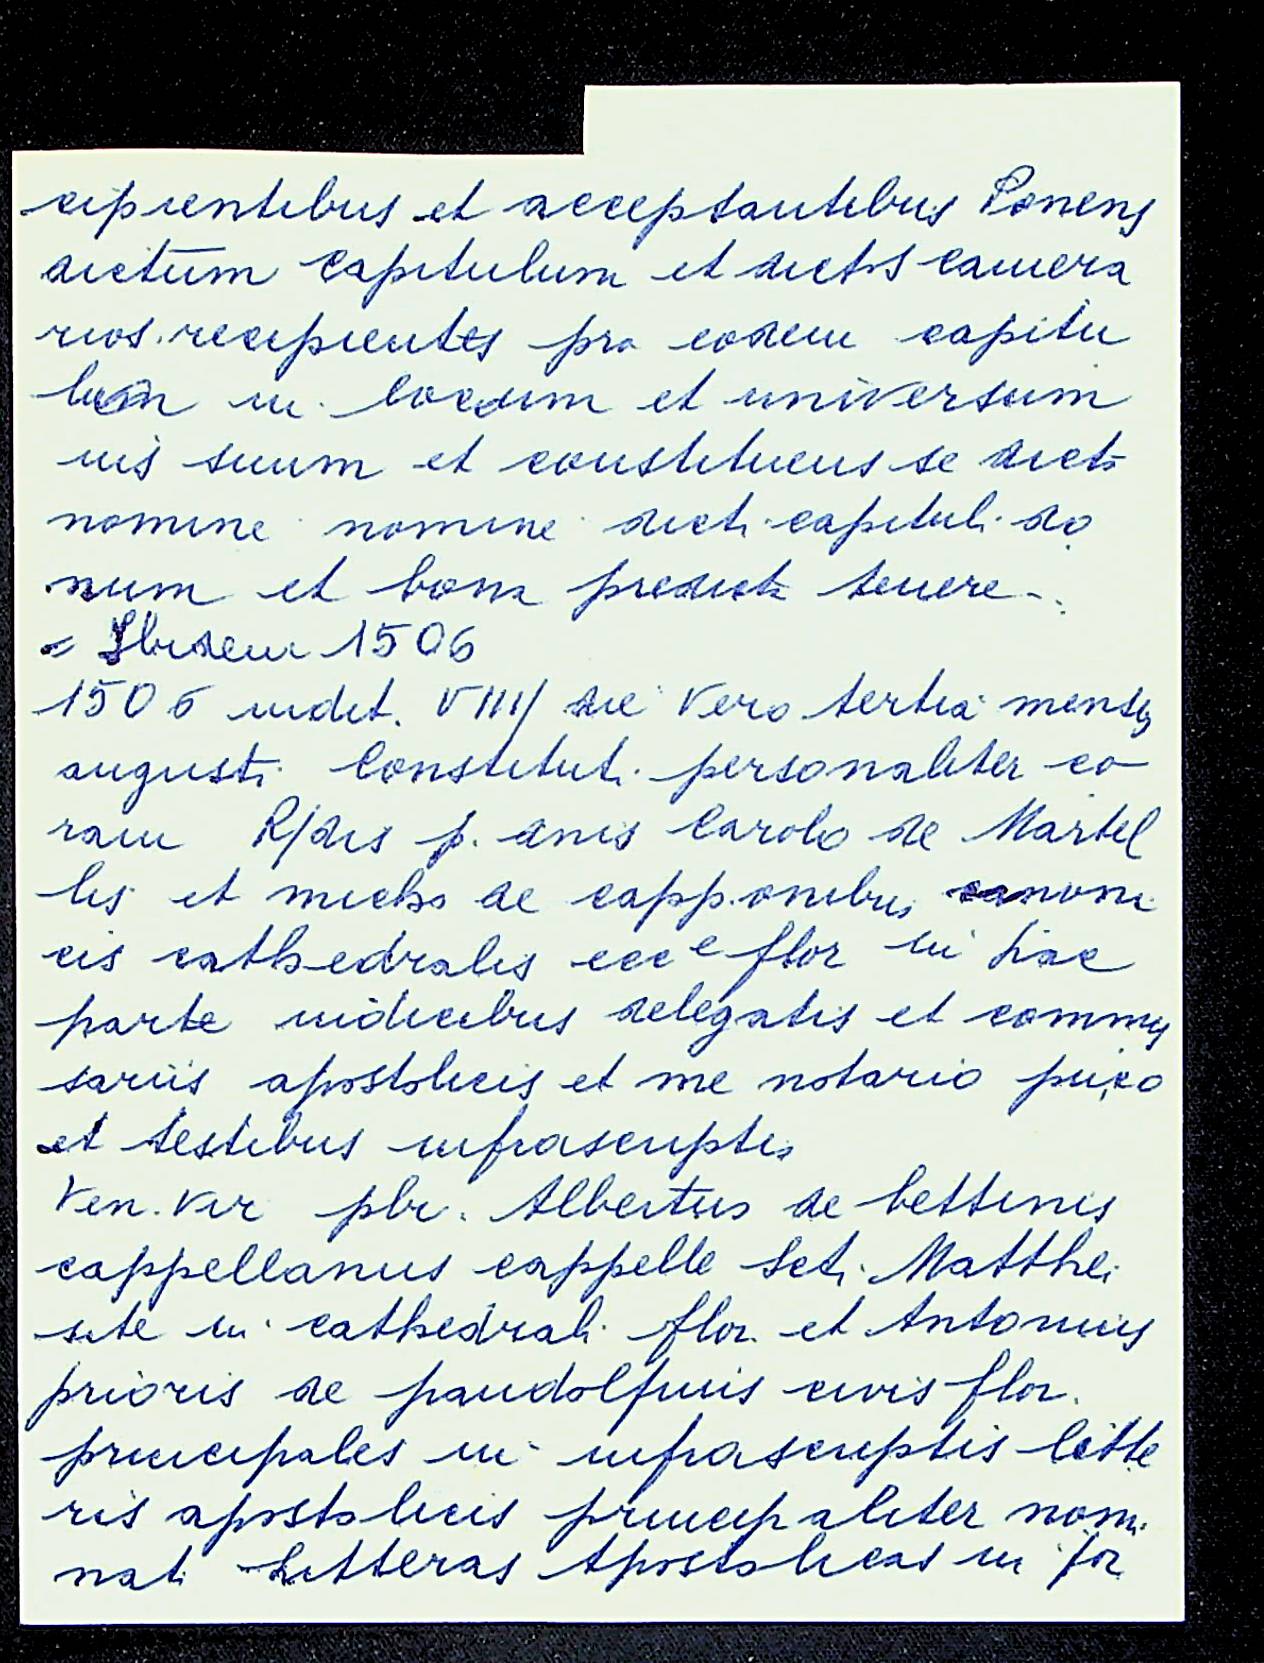 cipientibus et acceptantibus Ponens
dictum capitulum et dictos camera
rios recipientes pro eodem capitu
lum in locum et universum
ius suum et constituens se dicto
nomine nomine dicti capituli do
num et bona predicta tenere -.
= Ibidem 1506
1506 indit. VIIII die vero tertia mensis
augusti Constituti personaliter co-
ram R/dis p. dnis Carolo de Martel
lis et micho de capponibus canoni
cis cathedralis ecc e flor in hac
parte iudicibus delegatis et commis
sariis apostolicis et me notario
et testibus infrascriptis
Ven. Vir pbr. Albertus de bettinis
cappellanus cappelle Scti Matthei
site in cathedrali flor. et Antonius
prioris de pandolfinis civis flor.
principales in infrascriptis litte
ris apostolicis principaliter nomi
nati Litteras Apostolicas in for